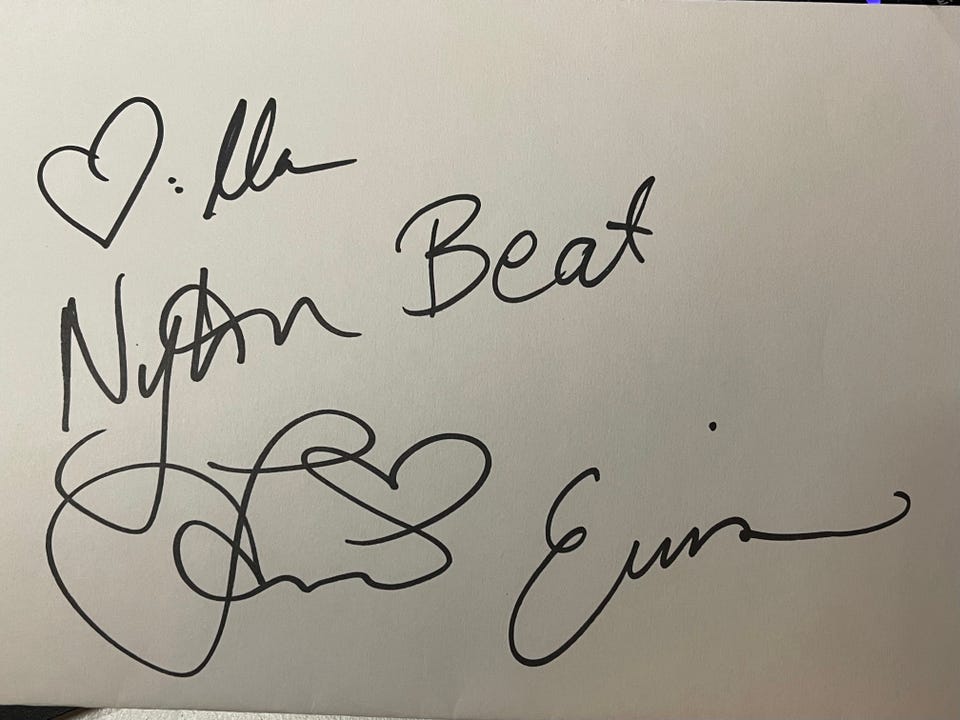 ♡:lla
Nylon Beat
Erin